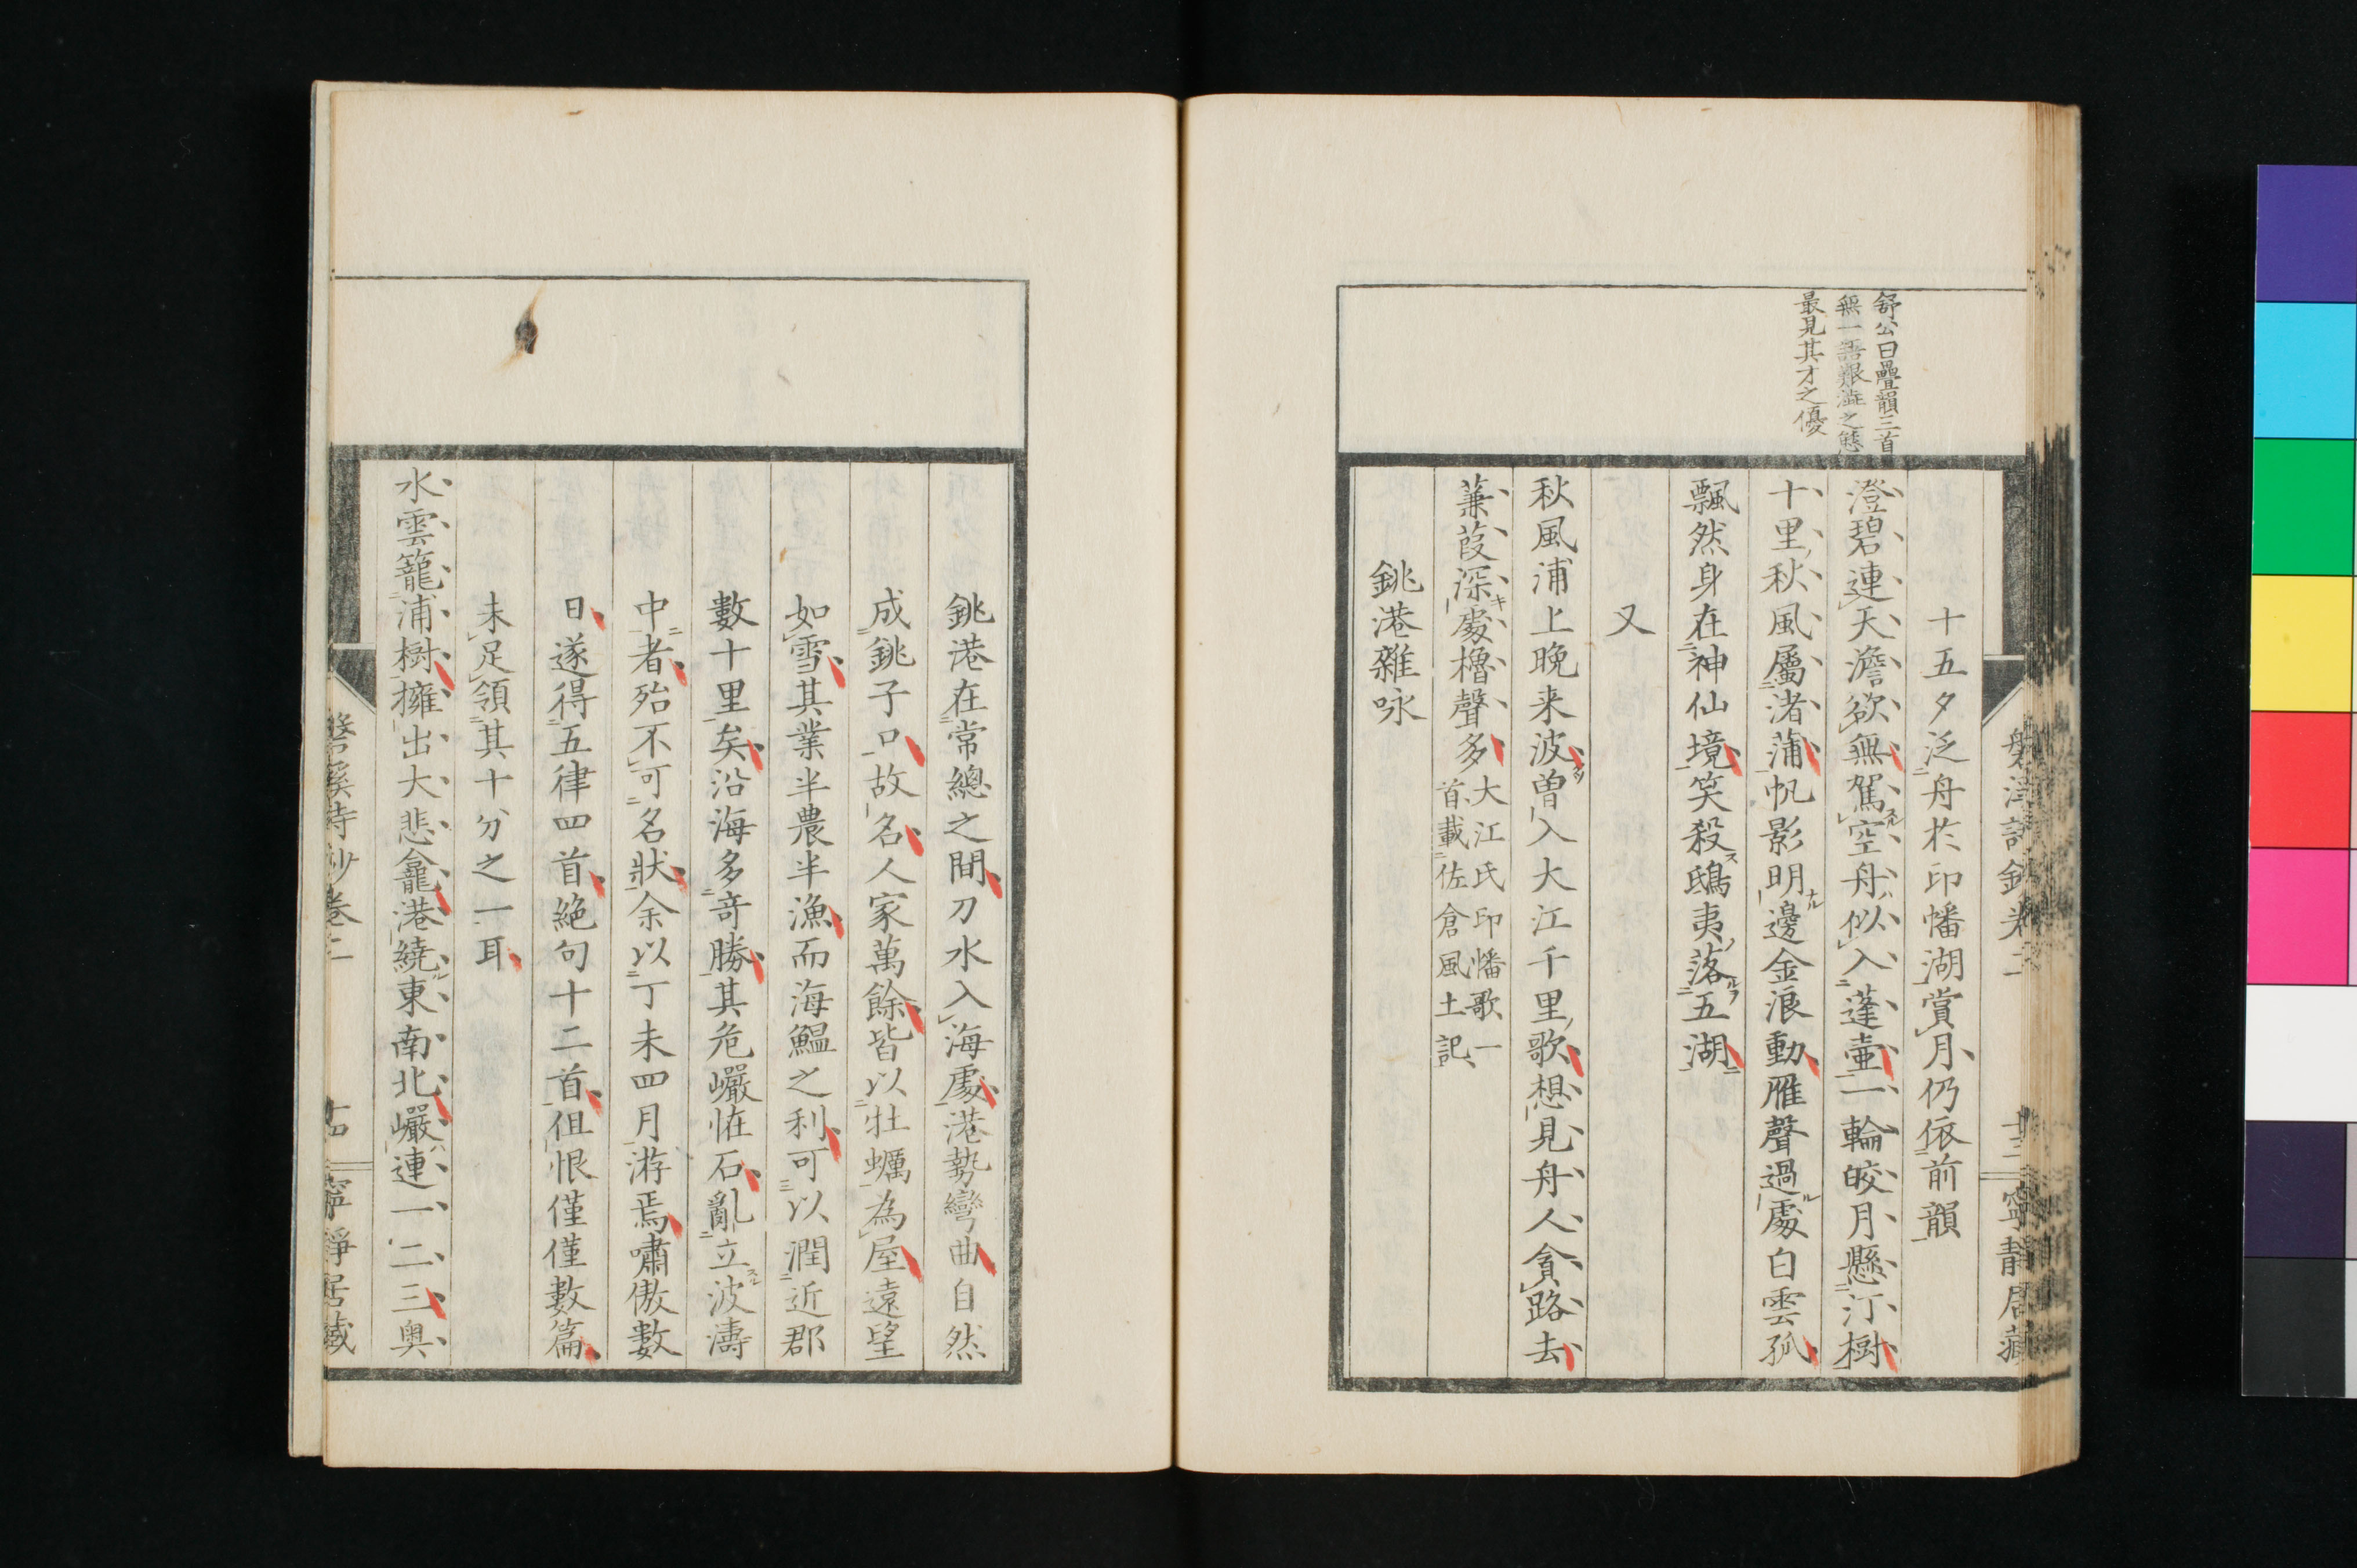 舒公曰疊韻三首
無一語艱澁之態
最見其才之優
十五夕泛舟於印幡湖賞月仍依前韻
澄碧連天澹欲無駕空舟似入蓬壷一輪皎月懸汀樹
十里秋風屬渚蒲帆影明邊金浪動雁聲過處白雲孤
飄然身在神仙境笑殺鴟夷落五湖
又
秋風浦上晩来波曽入大江千里歌想見舟人貪路去
蒹葭深處櫓聲多大江氏印幡歌一
首載佐倉風土記
銚港雜咏
銚港在常總之間刀水入海處港勢彎曲自然
成銚子口故名人家萬餘皆以牡蠣為屋遠望
如雪其業半農半漁而海鰮之利可以潤近郡
數十里矣沿海多竒勝其危巖恠石亂立波濤
中者殆不可名狀余以丁未四月游焉嘯傲數
日遂得五律四首絶句十二首但恨僅僅數篇
未足領其十分之一耳
水雲籠浦樹擁出大悲龕港繞東南北巖連一二三奥
磐溪詩鈔卷二 十四 寧靜居藏